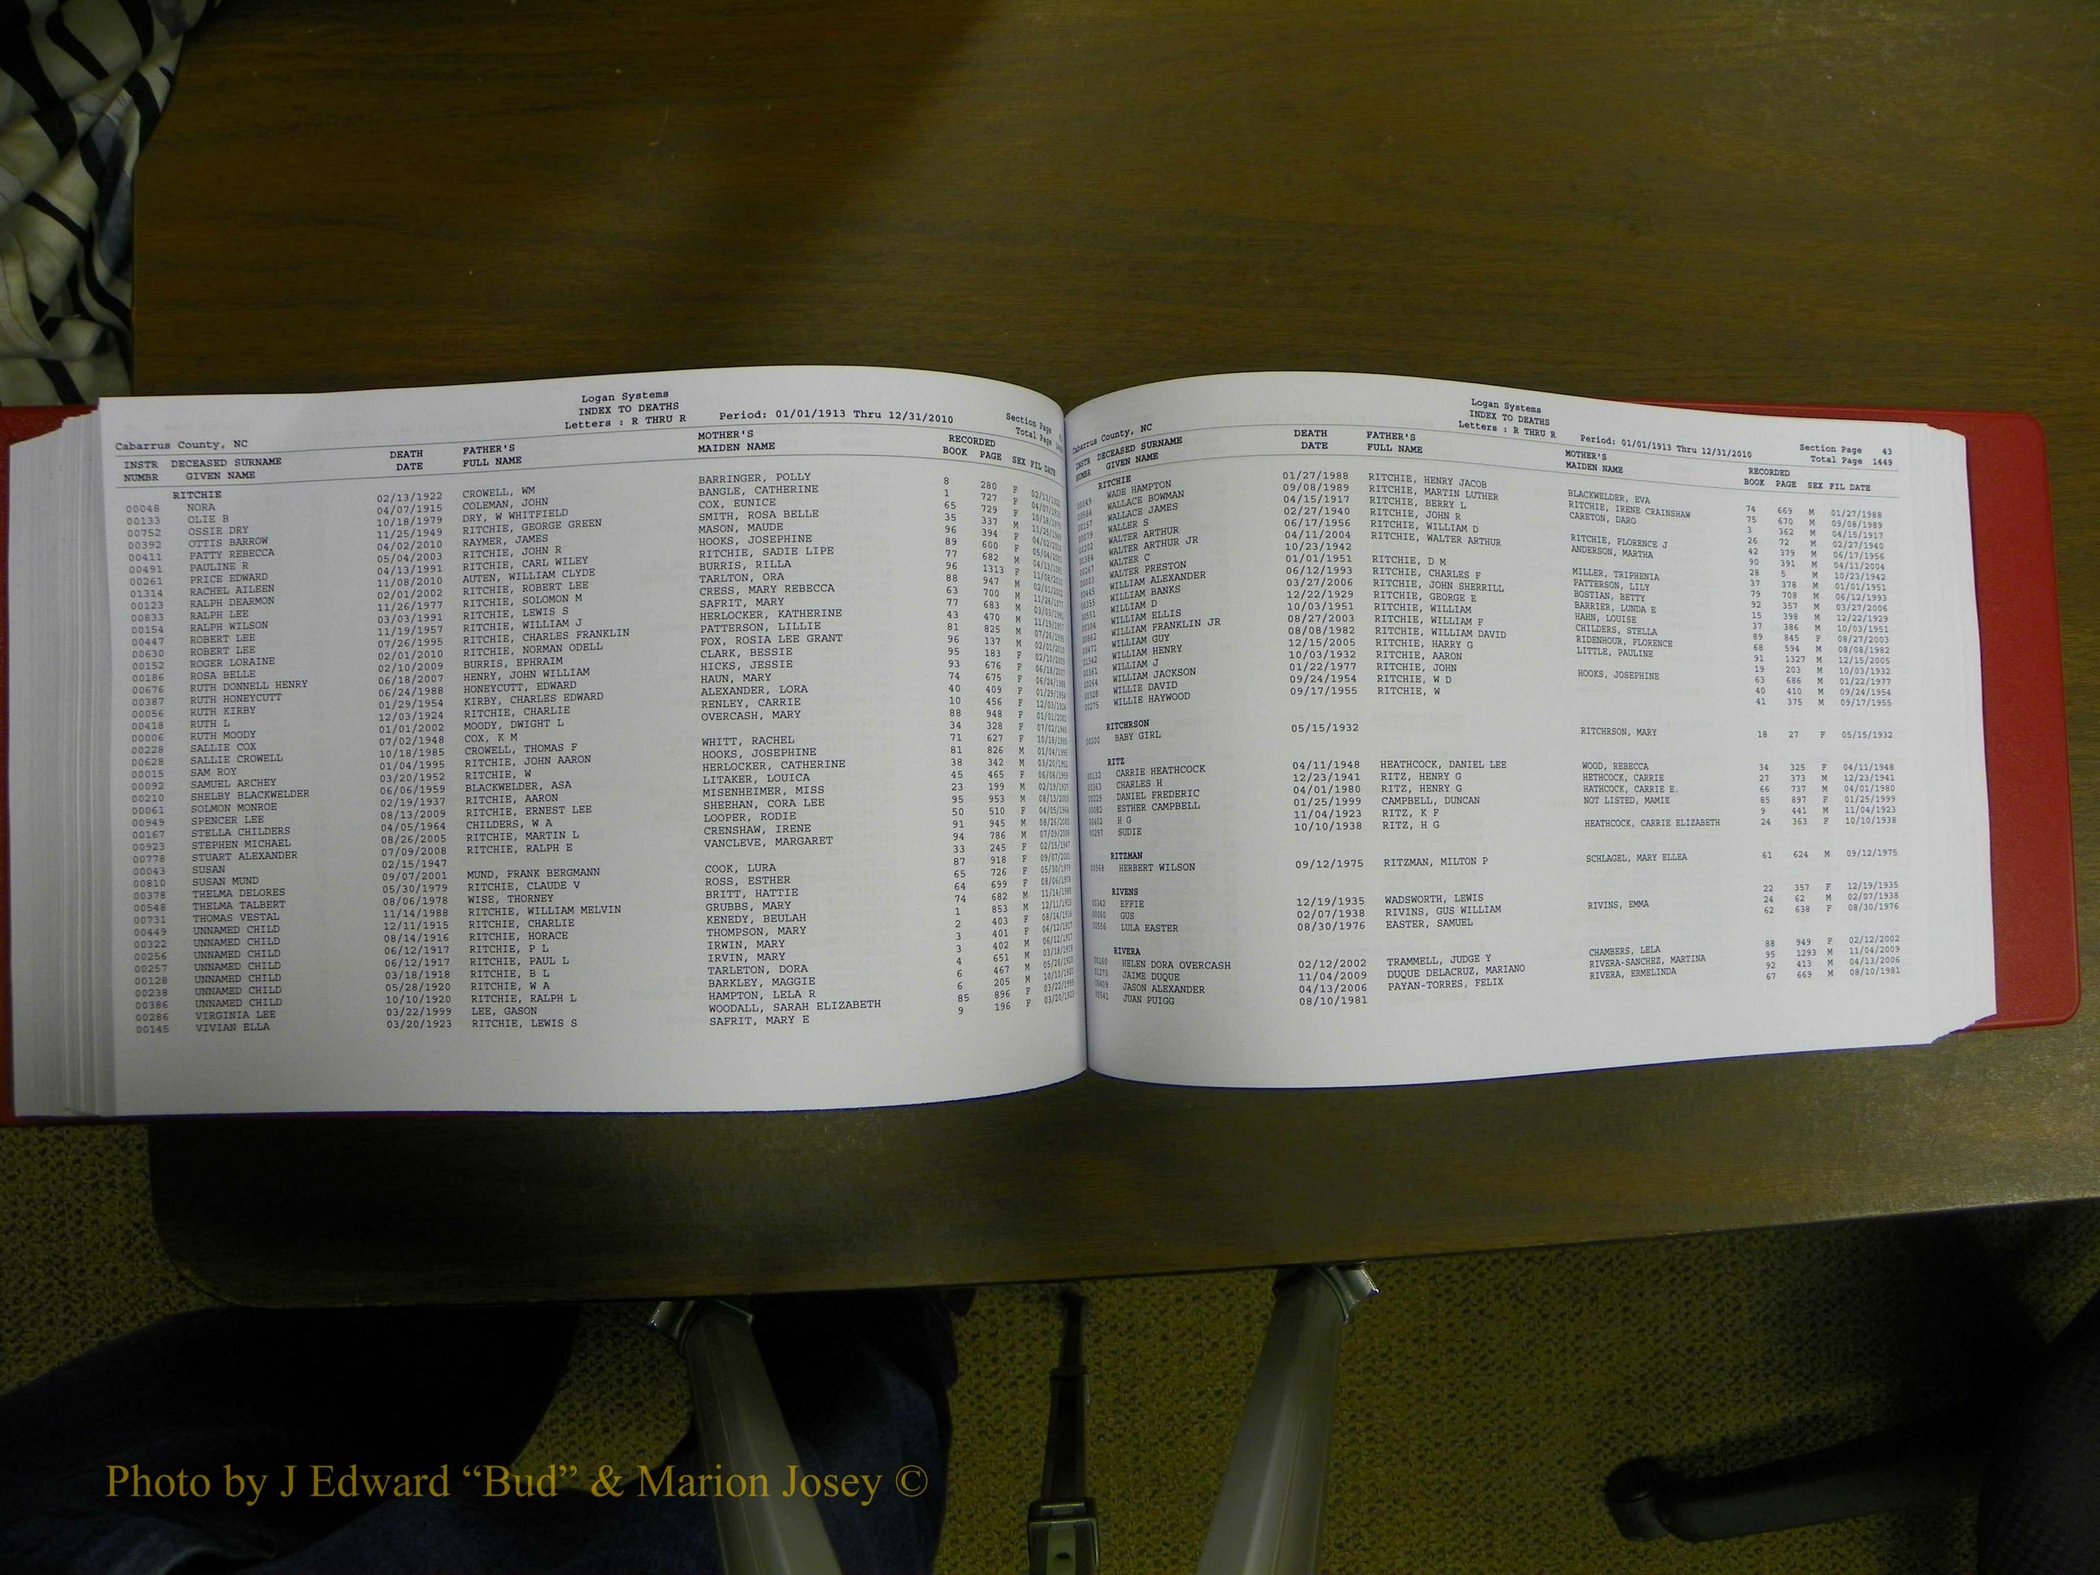 Logan Systems
INDEX TO DEATHS
Letters : R THRU R Period: 01/01/1913 Thru 12/31/2010 Section Page
Cabarrus County, NC Total Page
INSTR DECEASED SURNAME DEATH FATHER'S MOTHER'S RECORDED
NUMBR GIVEN NAME DATE FULL NAME MAIDEN NAME BOOK PAGE SEX FIL DATE
RITCHIE
00048 NORA 02/13/1922 CROWELL, WM BARRINGER, POLLY 8 280 F 02/13/1922
00133 OLIE B 04/07/1915 COLEMAN, JOHN BANGLE, CATHERINE 1 727 F
00752 OSSIE DRY 10/18/1979 DRY, W WHITFIELD COX, EUNICE 65 729 F 10/18/1979
00392 OTTIS BARROW 11/25/1949 RITCHIE, GEORGE GREEN SMITH, ROSA BELLE 35 337 M
00411 PATTY REBECCA 04/02/2010 RAYMER, JAMES MASON, MAUDE 96 394 F 04/02/2010
00491 PAULINE R 05/04/2003 RITCHIE, JOHN R HOOKS, JOSEPHINE 89 600 F 05/04/2003
00261 PRICE EDWARD 04/13/1991 RITCHIE, CARL WILEY RITCHIE, SADIE LIPE 77 682 M 04/13/1991
01314 RACHEL AILEEN 11/08/2010 AUTEN, WILLIAM CLYDE BURRIS, RILLA 96 1313 F 11/08/2010
00123 RALPH DEARMON 02/01/2002 RITCHIE, ROBERT LEE TARLTON, ORA 88 947 M 02/01/2002
00833 RALPH LEE 11/26/1977 RITCHIE, SOLOMON M CRESS, MARY REBECCA 63 700 M 11/26/1977
00154 RALPH WILSON 03/03/1991 RITCHIE, LEWIS S SAFRIT, MARY 77 683 M 03/03/1991
00447 ROBERT LEE 11/19/1957 RITCHIE, WILLIAM J HERLOCKER, KATHERINE 43 470 M 11/19/1957
00630 ROBERT LEE 07/26/1995 RITCHIE, CHARLES FRANKLIN PATTERSON, LILLIE 81 825 M 07/26/1995
00152 ROGER LORAINE 02/01/2010 RITCHIE, NORMAN ODELL FOX, ROSIA LEE GRANT 96 137 M 02/01/2010
00186 ROSA BELLE 02/10/2009 BURRIS, EPHRAIM CLARK, BESSIE 95 183 F 02/10/2009
00676 RUTH DONNELL HENRY 06/18/2007 HENRY, JOHN WILLIAM HICKS, JESSIE 93 676 F 06/18/2007
00387 RUTH HONEYCUTT 06/24/1988 HONEYCUTT, EDWARD HAUN, MARY 74 675 F 06/24/1988
00056 RUTH KIRBY 01/29/1954 KIRBY, CHARLES EDWARD ALEXANDER, LORA 40 409 F 01/29/1954
00418 RUTH L 12/03/1924 RITCHIE, CHARLIE RENLEY, CARRIE 10 456 F 12/03/1924
00006 RUTH MOODY 01/01/2002 MOODY, DWIGHT L OVERCASH, MARY 88 948 F 01/01/2002
00228 SALLIE COX 07/02/1948 COX, K M 34 328 F 07/02/1948
00628 SALLIE CROWELL 10/18/1985 CROWELL, THOMAS F WHITT, RACHEL 71 627 F 10/18/1985
00015 SAM ROY 01/04/1995 RITCHIE, JOHN AARON HOOKS, JOSEPHINE 81 826 M 01/04/1995
00092 SAMUEL ARCHEY 03/20/1952 RITCHIE, W HERLOCKER, CATHERINE 38 342 M 03/20/1952
00210 SHELBY BLACKWELDER 06/06/1959 BLACKWELDER, ASA LITAKER, LOUICA 45 465 F 06/06/1959
00061 SOLMON MONROE 02/19/1937 RITCHIE, AARON MISENHEIMER, MISS 23 199 M 02/19/1937
00949 SPENCER LEE 08/13/2009 RITCHIE, ERNEST LEE SHEEHAN, CORA LEE 95 953 M 08/13/2009
00167 STELLA CHILDERS 04/05/1964 CHILDERS, W A LOOPER, RODIE 50 510 F 04/05/1964
00923 STEPHEN MICHAEL 08/26/2005 RITCHIE, MARTIN L CRENSHAW, IRENE 91 945 M 08/26/2005
00778 STUART ALEXANDER 07/09/2008 RITCHIE, RALPH E VANCLEVE, MARGARET 94 786 M 07/09/2008
00043 SUSAN 02/15/1947 33 245 F 02/15/1947
00810 SUSAN MUND 09/07/2001 MUND, FRANK BERGMANN COOK, LURA 87 918 F 09/07/2001
00378 THELMA DELORES 05/30/1979 RITCHIE, CLAUDE V ROSS, ESTHER 65 726 F 05/30/1979
00548 THELMA TALBERT 08/06/1978 WISE, THORNEY BRITT, HATTIE 64 699 F 08/06/1978
00731 THOMAS VESTAL 11/14/1988 RITCHIE, WILLIAM MELVIN GRUBBS, MARY 74 682 M
00449 UNNAMED CHILD 12/11/1915 RITCHIE, CHARLIE KENEDY, BEULAH 1 853 M 12/11/1915
00322 UNNAMED CHILD 08/14/1916 RITCHIE, HORACE THOMPSON, MARY 2 403 F 08/14/1916
00256 UNNAMED CHILD 06/12/1917 RITCHIE, P L IRWIN, MARY 3 401 F 06/12/1917
00257 UNNAMED CHILD 06/12/1917 RITCHIE, PAUL L IRVIN, MARY 3 402 M 06/12/1917
00128 UNNAMED CHILD 03/18/1918 RITCHIE, B L TARLETON, DORA 4 651 M 03/18/1918
00238 UNNAMED CHILD 05/28/1920 RITCHIE, W A BARKLEY, MAGGIE 6 467 M 05/28/1920
00386 UNNAMED CHILD 10/10/1920 RITCHIE, RALPH L HAMPTON, LELA R 6 205 M 10/10/1920
00286 VIRGINIA LEE 03/22/1999 LEE, GASON WOODALL, SARAH ELIZABETH 85 896 F 03/22/1999
00145 VIVIAN ELLA 03/20/1923 RITCHIE, LEWIS S SAFRIT, MARY E 9 196 F 03/20/1923
Logan Systems
INDEX TO DEATHS
Letters : R THRU R Period: 01/01/1913 Thru 12/31/2010 Section Page 43
Cabarrus County, NC Total Page 1449
INSTR DECEASED SURNAME DEATH FATHER'S MOTHER'S RECORDED
NUMBR GIVEN NAME DATE FULL NAME MAIDEN NAME BOOK PAGE SEX FIL DATE
RITCHIE
00049 WADE HAMPTON 01/27/1988 RITCHIE, HENRY JACOB BLACKWELDER, EVA 74 669 M 01/27/1988
00584 WALLACE BOWMAN 09/08/1989 RITCHIE, MARTIN LUTHER RITCHIE, IRENE CRAINSHAW 75 670 M 09/08/1989
00157 WALLACE JAMES 04/15/1917 RITCHIE, BERRY L CARETON, DARO 3 362 M 04/15/1917
00079 WALLER S 02/27/1940 RITCHIE, JOHN R 26 72 M 02/27/1940
00202 WALTER ARTHUR 06/17/1956 RITCHIE, WILLIAM D RITCHIE, FLORENCE J 42 379 M 06/17/1956
00384 WALTER ARTHUR JR 04/11/2004 RITCHIE, WALTER ARTHUR ANDERSON, MARTHA 90 391 M 04/11/2004
00267 WALTER C 10/23/1942 28 5 M 10/23/1942
00003 WALTER PRESTON 01/01/1951 RITCHIE, D M MILLER, TRIPHENIA 37 378 M 01/01/1951
00445 WILLIAM ALEXANDER 06/12/1993 RITCHIE, CHARLES F PATTERSON, LILY 79 708 M 06/12/1993
00355 WILLIAM BANKS 03/27/2006 RITCHIE, JOHN SHERRILL BOSTIAN, BETTY 92 357 M 03/27/2006
00551 WILLIAM D 12/22/1929 RITCHIE, GEORGE E BARRIER, LUNDA E 15 398 M 12/22/1929
00304 WILLIAM ELLIS 10/03/1951 RITCHIE, WILLIAM HAHN, LOUISE 37 386 M 10/03/1951
00862 WILLIAM FRANKLIN JR 08/27/2003 RITCHIE, WILLIAM F CHILDERS, STELLA 89 845 F 08/27/2003
00471 WILLIAM GUY 08/08/1982 RITCHIE, WILLIAM DAVID RIDENHOUR, FLORENCE 68 594 M 08/08/1982
01342 WILLIAM HENRY 12/15/2005 RITCHIE, HARRY G LITTLE, PAULINE 91 1327 M 12/15/2005
00361 WILLIAM J 10/03/1932 RITCHIE, AARON 19 203 M 10/03/1932
00064 WILLIAM JACKSON 01/22/1977 RITCHIE, JOHN HOOKS, JOSEPHINE 63 686 M 01/22/1977
00328 WILLIE DAVID 09/24/1954 RITCHIE, W D 40 410 M 09/24/1954
00275 WILLIE HAYWOOD 09/17/1955 RITCHIE, W 41 375 M 09/17/1955
RITCHRSON
00200 BABY GIRL 05/15/1932 RITCHRSON, MARY 18 27 F 05/15/1932
RITZ
00132 CARRIE HEATHCOCK 04/11/1948 HEATHCOCK, DANIEL LEE WOOD, REBECCA 34 325 F 04/11/1948
00363 CHARLES H 12/23/1941 RITZ, HENRY G HETHCOCK, CARRIE 27 373 M 12/23/1941
00229 DANIEL FREDERIC 04/01/1980 RITZ, HENRY G HATHCOCK, CARRIE E. 66 737 M 04/01/1980
00082 ESTHER CAMPBELL 01/25/1999 CAMPBELL, DUNCAN NOT LISTED, MAMIE 85 897 F 01/25/1999
00402 H G 11/04/1923 RITZ, K F 9 441 M 11/04/1923
00297 SUDIE 10/10/1938 RITZ, H G HEATHCOCK, CARRIE ELIZABETH 24 363 F 10/10/1938
RITZMAN
00568 HERBERT WILSON 09/12/1975 RITZMAN, MILTON P SCHLAGEL, MARY ELLEA 61 624 M 09/12/1975
RIVENS
00342 EFFIE 12/19/1935 WADSWORTH, LEWIS 22 357 F 12/19/1935
00060 GUS 02/07/1938 RIVINS, GUS WILLIAM RIVINS, EMMA 24 62 M 02/07/1938
00556 LULA EASTER 08/30/1976 EASTER, SAMUEL 62 638 F 08/30/1976
RIVERA
00160 HELEN DORA OVERCASH 02/12/2002 TRAMMELL, JUDGE Y CHAMBERS, LELA 88 949 F 02/12/2002
01273 JAIME DUQUE 11/04/2009 DUQUE DELACRUZ, MARIANO RIVERA-SANCHEZ, MARTINA 95 1293 M 11/04/2009
00409 JASON ALEXANDER 04/13/2006 PAYAN-TORRES, FELIX RIVERA, ERMELINDA 92 413 M 04/13/2006
00541 JUAN PUIGG 08/10/1981 67 669 M 08/10/1981
Photo by J Edward “Bud” & Marion Josey ©